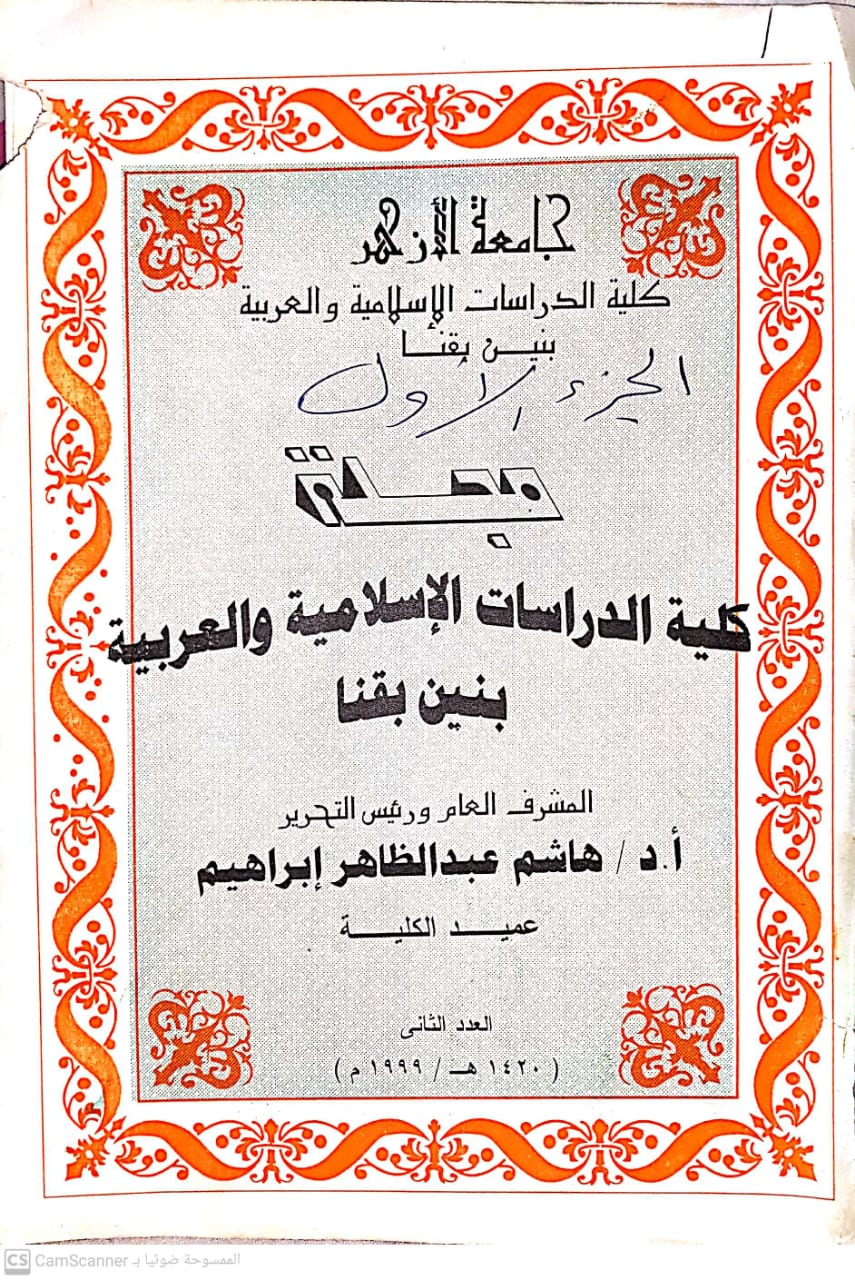 جامعة الأزهر
كلية الدراسات الإسلامية والعربية
بنين بقنا
الجزء الأول
مجلة
كلية الدراسات الإسلامية والعربية
بنين بقنا
المشرف العام ورئيس التحرير
أ.د / هاشم عبدالظاهر إبراهيم
عميد الكلية
العدد الثانى
( ١٤٢٠ هـ / ١٩٩٩ م )
CS CamScanner الممسوحة ضوئيا بـ